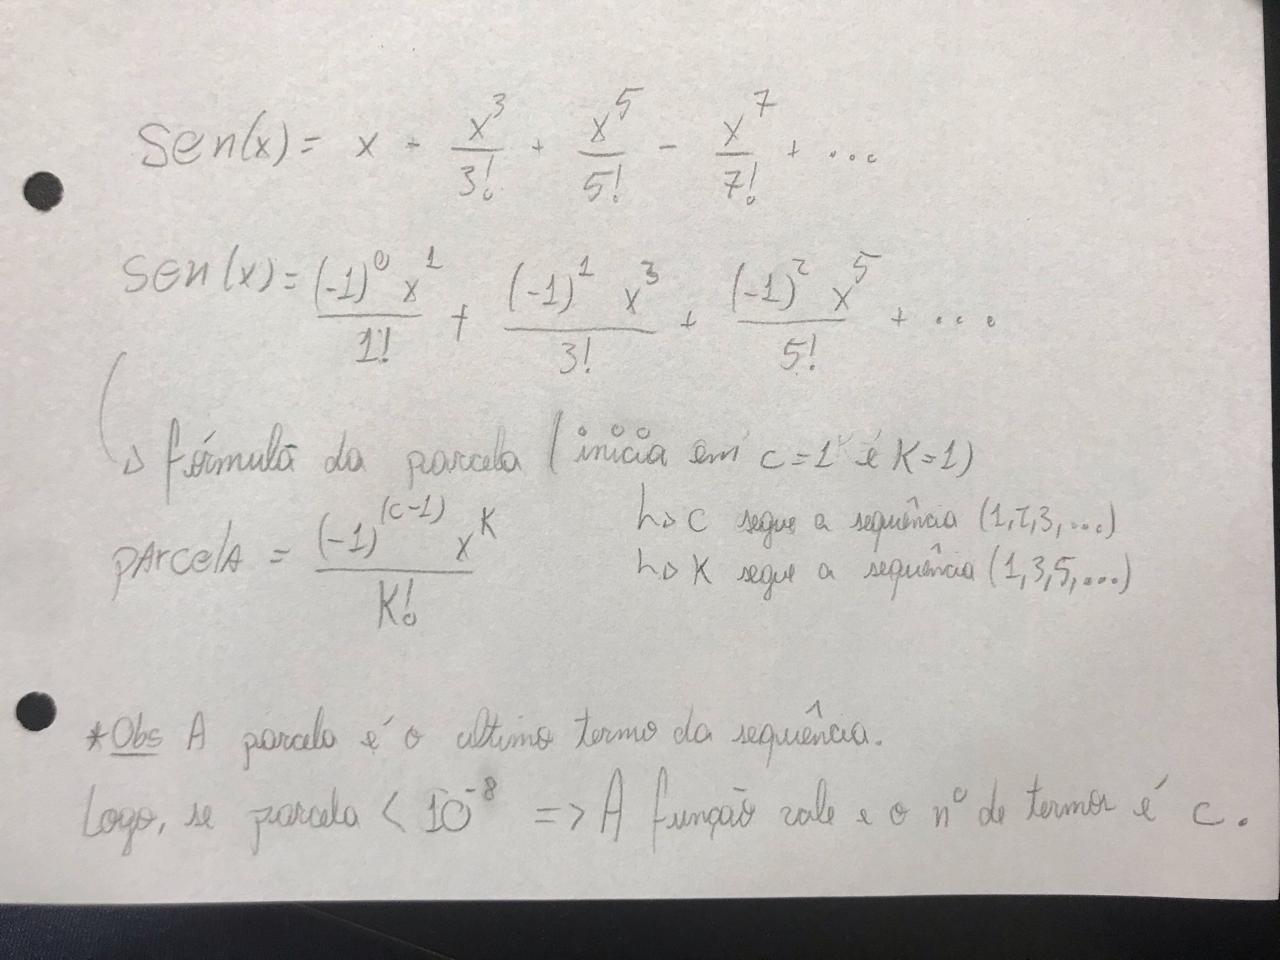 Sen(x) = x - x³/3! + x⁵/5! - x⁷/7! + ...
Sen(x) = (-1)⁰ x¹/1! + (-1)¹ x³/3! + (-1)² x⁵/5! + ...
fórmula da parcela (inicia em c=1 e K=1)
parcela = (-1)^(c-1) x^K/K!
↳ c segue a sequência (1,2,3,...)
↳ K segue a sequência (1,3,5,...)
*Obs A parcela é o ultimo termo da sequência.
Logo, se parcela < 10⁻⁸ => A função vale e o nº de termos é c.